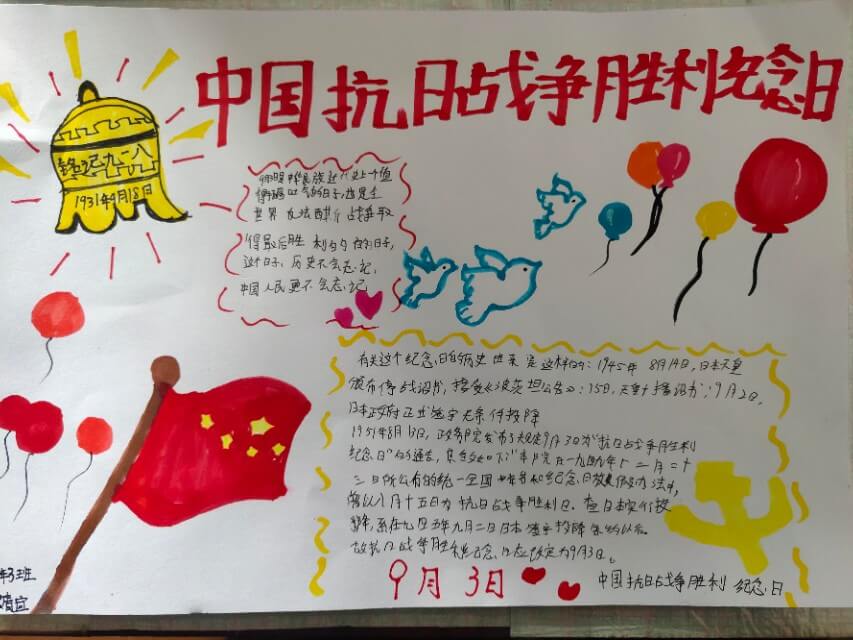 中国抗日战争胜利纪念日
九一八
1931年9月18日
世界
得最后胜利的日子,
这个日子,历史不会忘记,
中国人民更不会忘记
有关这个纪念日的历史由来是这样的:1945年8月14日,日本天皇
颁布停战诏书,接受《波茨坦公告》:15日,天皇播诏书;9月2日,
日本政府正式签字无条件投降
1951年8月13日,政务院发布了规定9月3日为"抗日战争胜利
纪念日"的通告,
三日所公布的统一全国年节和纪念日放假办法中,
曾以八月十五日为抗日战争胜利日。查日本实行投
降,系在九四五年九月二日日本签字投降以后。
故抗日战争胜利纪念日应改定为9月3日。
9月3日
中国抗日战争胜利纪念日
3班